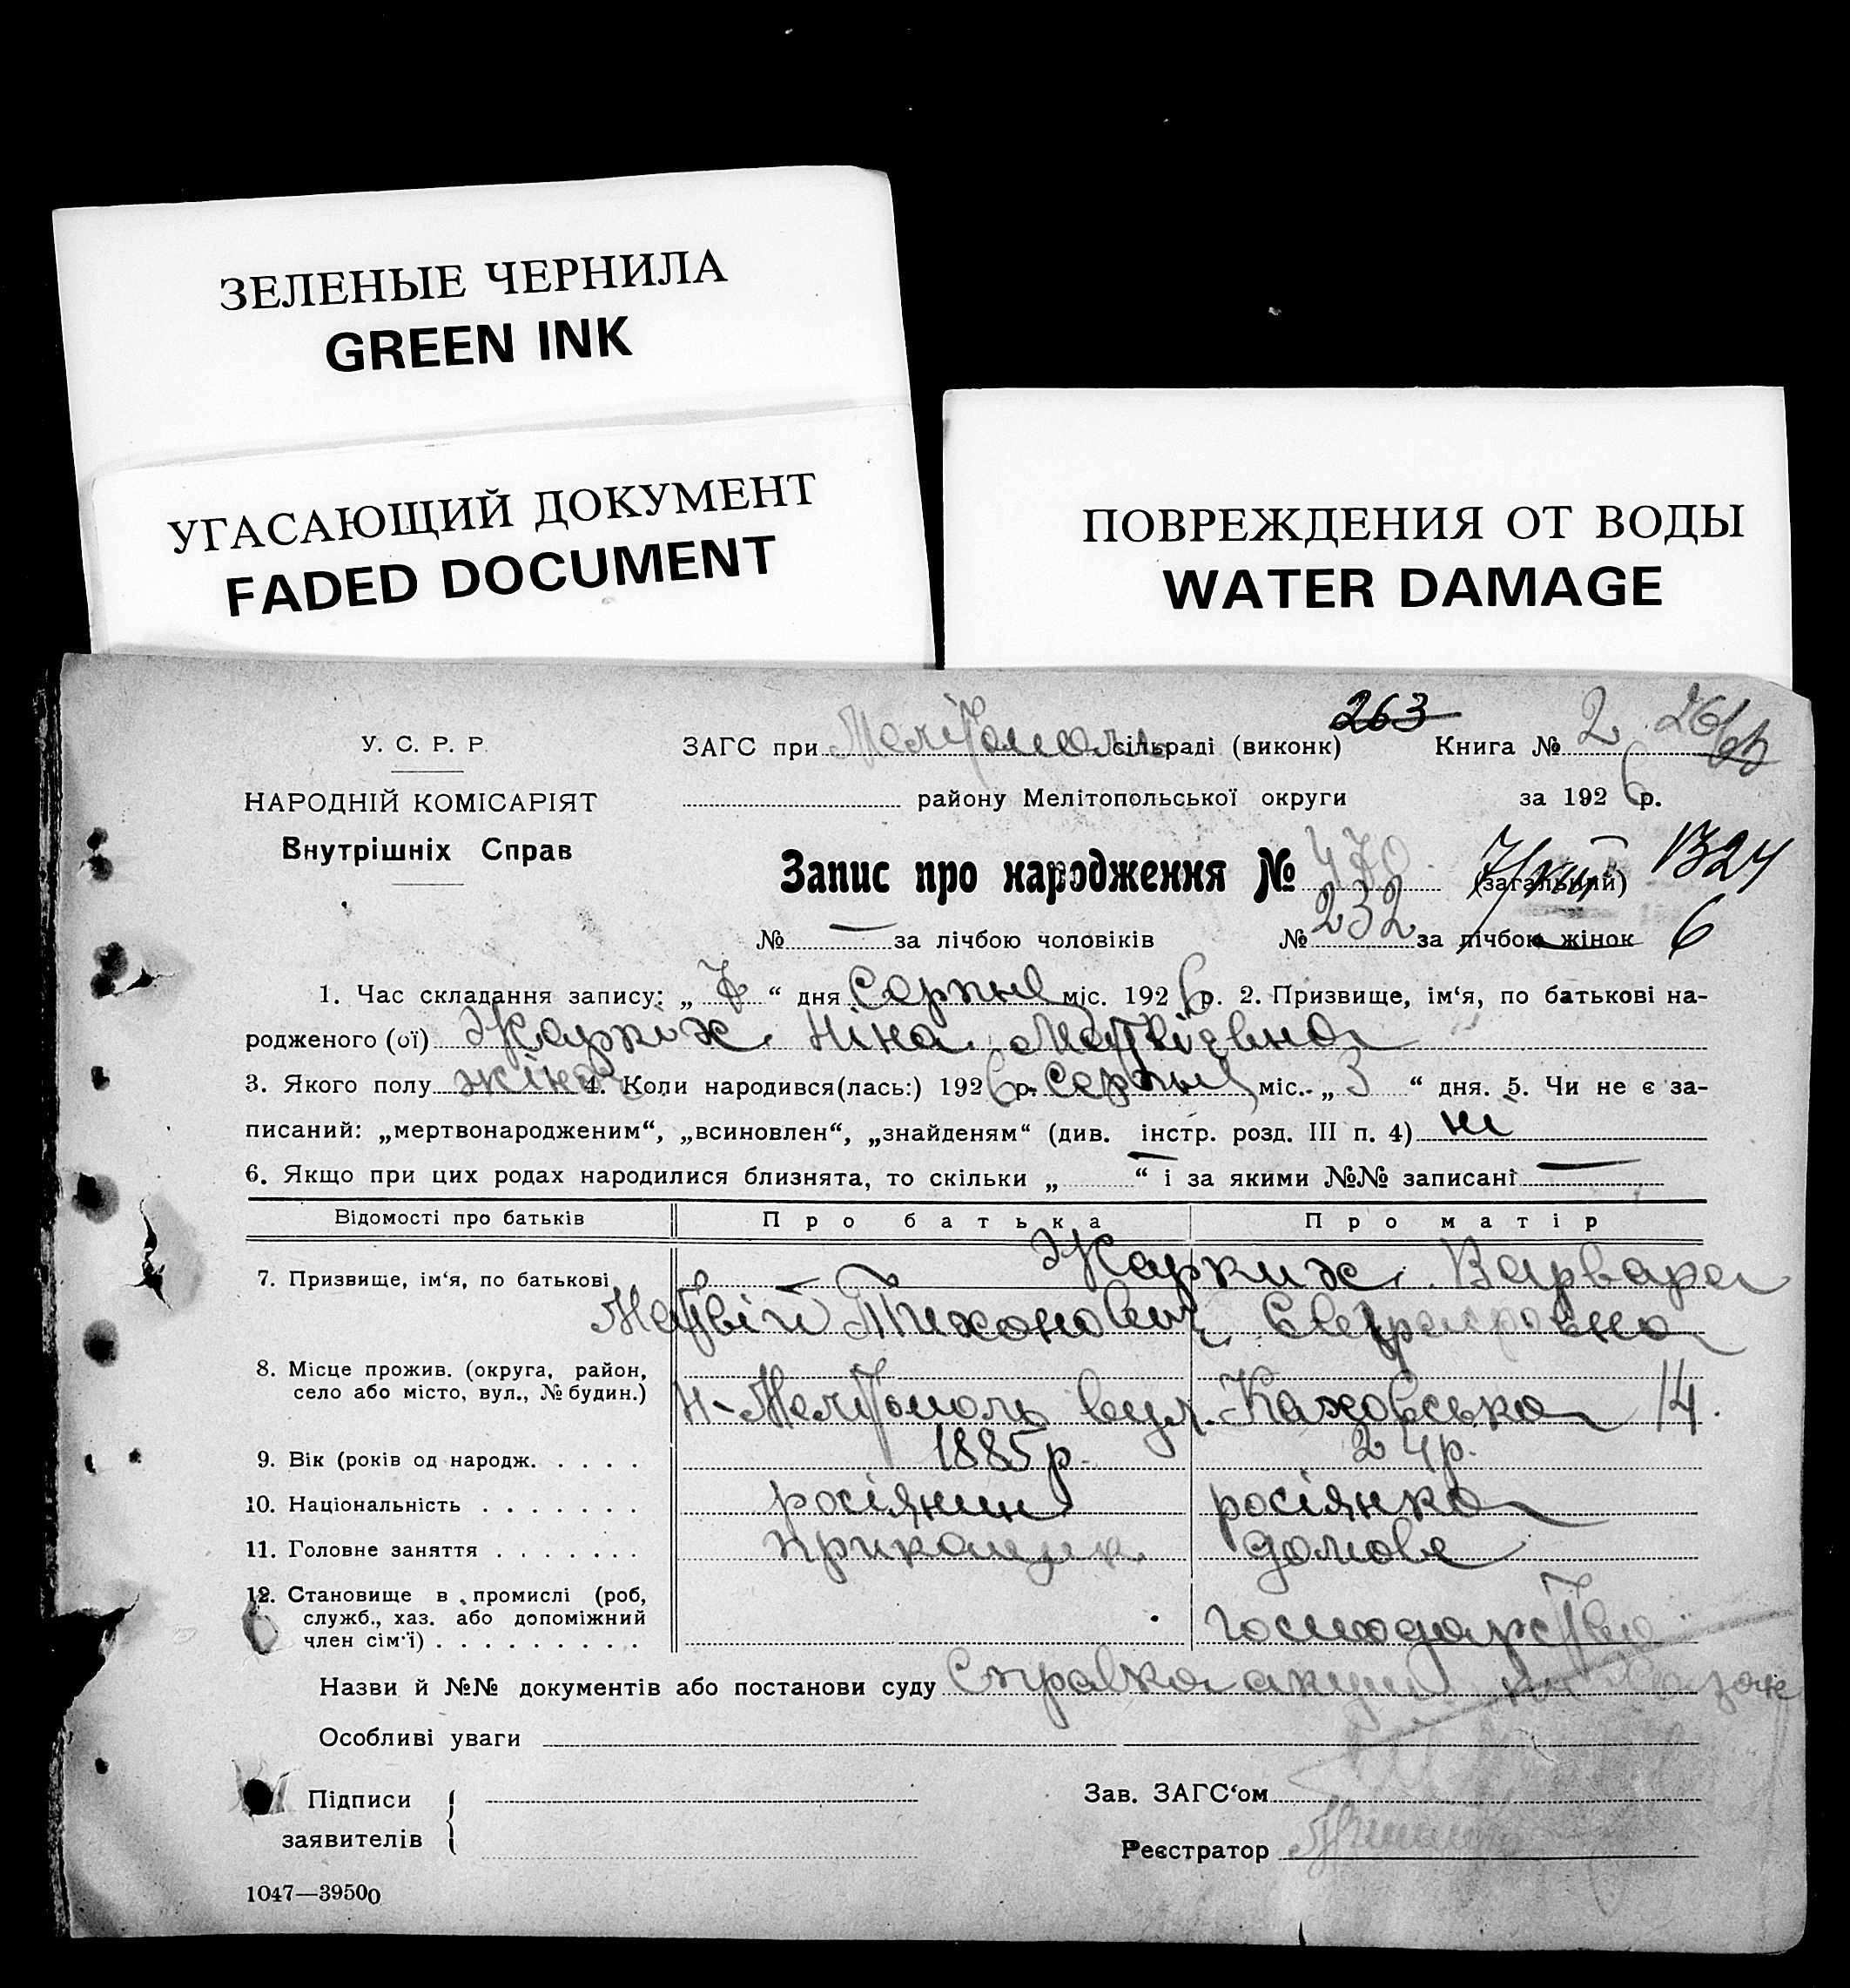 ЗЕЛЕНЫЕ ЧЕРНИЛА
GREEN INK
УГАСАЮЩИЙ ДОКУМЕНТ
FADED DOCUMENT
ПОВРЕЖДЕНИЯ ОТ ВОДЫ
WATER DAMAGE
263
У. С. Р. Р. ЗАГС при сільраді (виконк) Книга № 2
НАРОДНІЙ КОМІСАРІЯТ району Мелітопольської округи за 1926 р.
Внутрішніх Справ
Запис про народження № 470 (загальний) 1324
№ — за лічбою чоловіків № 232 за лічбою жінок 6
1. Час складання запису: „ “ дня Серпня міс. 1926 р. 2. Призвище, ім‘я, по батькові на-
родженого (ої) Жаркіх Ніна Матвієвна
3. Якого полу жіноч. 4. Коли народився(лась:) 1926 р. Серпня міс. „3“ дня. 5. Чи не є за-
писаний: „мертвонародженим“, „всиновлен“, „знайденям“ (див. інстр. розд. III п. 4) ні
6. Якщо при цих родах народилися близнята, то скільки „—“ і за якими №№ записані —
Відомості про батьків Про батька Про матір
7. Призвище, ім‘я, по батькові Жарких Варвара
Матвій Тихонович
8. Місце прожив. (округа, район,
село або місто, вул., № будин.) Н-Мелітополь вул. Каховська 14.
9. Вік (років од народж. . . . . 1885 р. 24 р.
10. Національність . . . . . . . росіянин росіянка
11. Головне заняття . . . . . . . прикащик домове
12. Становище в промислі (роб,
служб., хаз. або допоміжний
член сім‘ї) . . . . . . . . . господарство
Назви й №№ документів або постанови суду Справка акуш
Особливі уваги
Підписи
заявителів
Зав. ЗАГС‘ом
Реєстратор
1047—39500